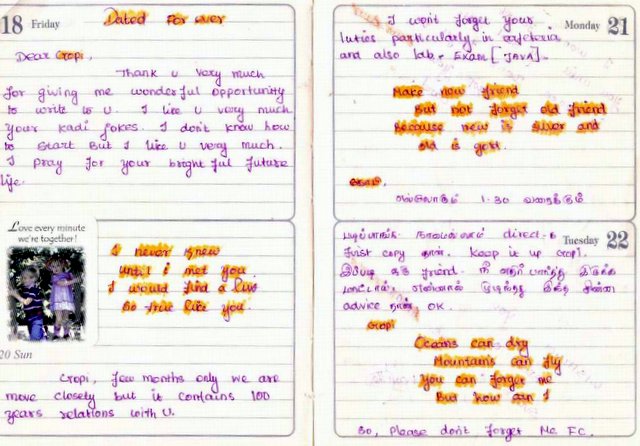 18 Friday
Dated For ever
Dear Gopi,
Thank U very much
for giving me wonderful opportunity
to write to U. I like U very much
your kadi jokes. I don't know how
to start But I like U very much.
I pray for your bright ful future
life.
Love every minute
we're together!
I never knew
until i met you
I would find a
So true like you.
20 Sun
Gopi, few months only we are
move closely but it contains 100
years relations with U.
Monday 21
I wont forget your
luties particularly, in cafeteria
and also lab. Exam [JAVA].
Make new friend
But not forget old friend
Because new is silver and
old is gold.
கோபி,
எல்லோரும் 1.30 வரைக்கும்
Tuesday 22
direct-ஆ
First copy தான். Keep it up Gopi.
இப்படி ஒரு friend நீ எதிர் பார்த்து இருக்க
மாட்டாய். என்னால் முடிந்தது இந்த சின்ன
advice தான் OK.
Gopi
Oceans can dry
Mountains can fly
You can forget me
But how can I
So, Please don't forget Me. F.C.